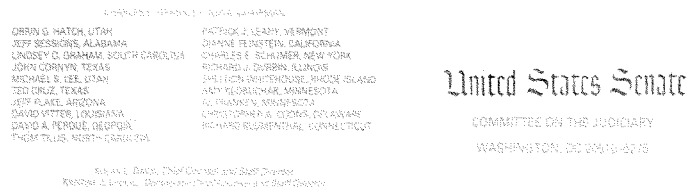 ORRIN G. HATCH, UTAH
JEFF SESSIONS, ALABAMA
LINDSEY O. GRAHAM, SOUTH CAROLINA
JOHN CORNYN, TEXAS
MICHAEL S. LEE, UTAH
TED CRUZ, TEXAS
JEFF FLAKE, ARIZONA
DAVID VITTER, LOUISIANA
DAVID A. PERDUE, GEORGIA
THOM TILLIS, NORTH CAROLINA
PATRICK J. LEAHY, VERMONT
DIANNE FEINSTEIN, CALIFORNIA
CHARLES E. SCHUMER, NEW YORK
RICHARD J. DURBIN, ILLINOIS
SHELDON WHITEHOUSE, RHODE ISLAND
AMY KLOBUCHAR, MINNESOTA
AL FRANKEN, MINNESOTA
CHRISTOPHER A. COONS, DELAWARE
RICHARD BLUMENTHAL, CONNECTICUT
Chief Counsel and Staff Director
United States Senate
COMMITTEE ON THE JUDICIARY
WASHINGTON, DC 20510-6275